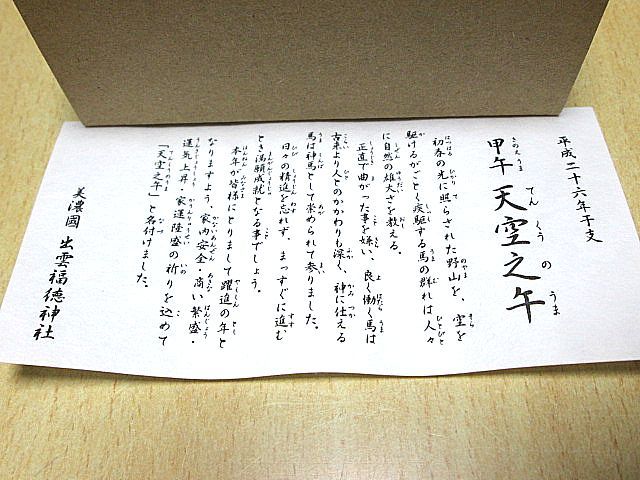 平成二十六年干支
甲午 天空之午
初春の光に照らされた野山を、空を
駆けるがごとく疾駆する馬の群れは人々
に自然の雄大さを教える。
正直で曲がった事を嫌い、良く働く馬は
古来より人とのかかわりも深く、神に仕える
馬は神馬として崇められて参りました。
日々の精進を忘れず、まっすぐに進む
とき満願成就となる事でしょう。
本年が皆様にとりまして躍進の年と
なりますよう、家内安全・商い繁盛・
運気上昇・家運隆盛の祈りを込めて
「天空之午」と名付けました。
美濃國 出雲福徳神社